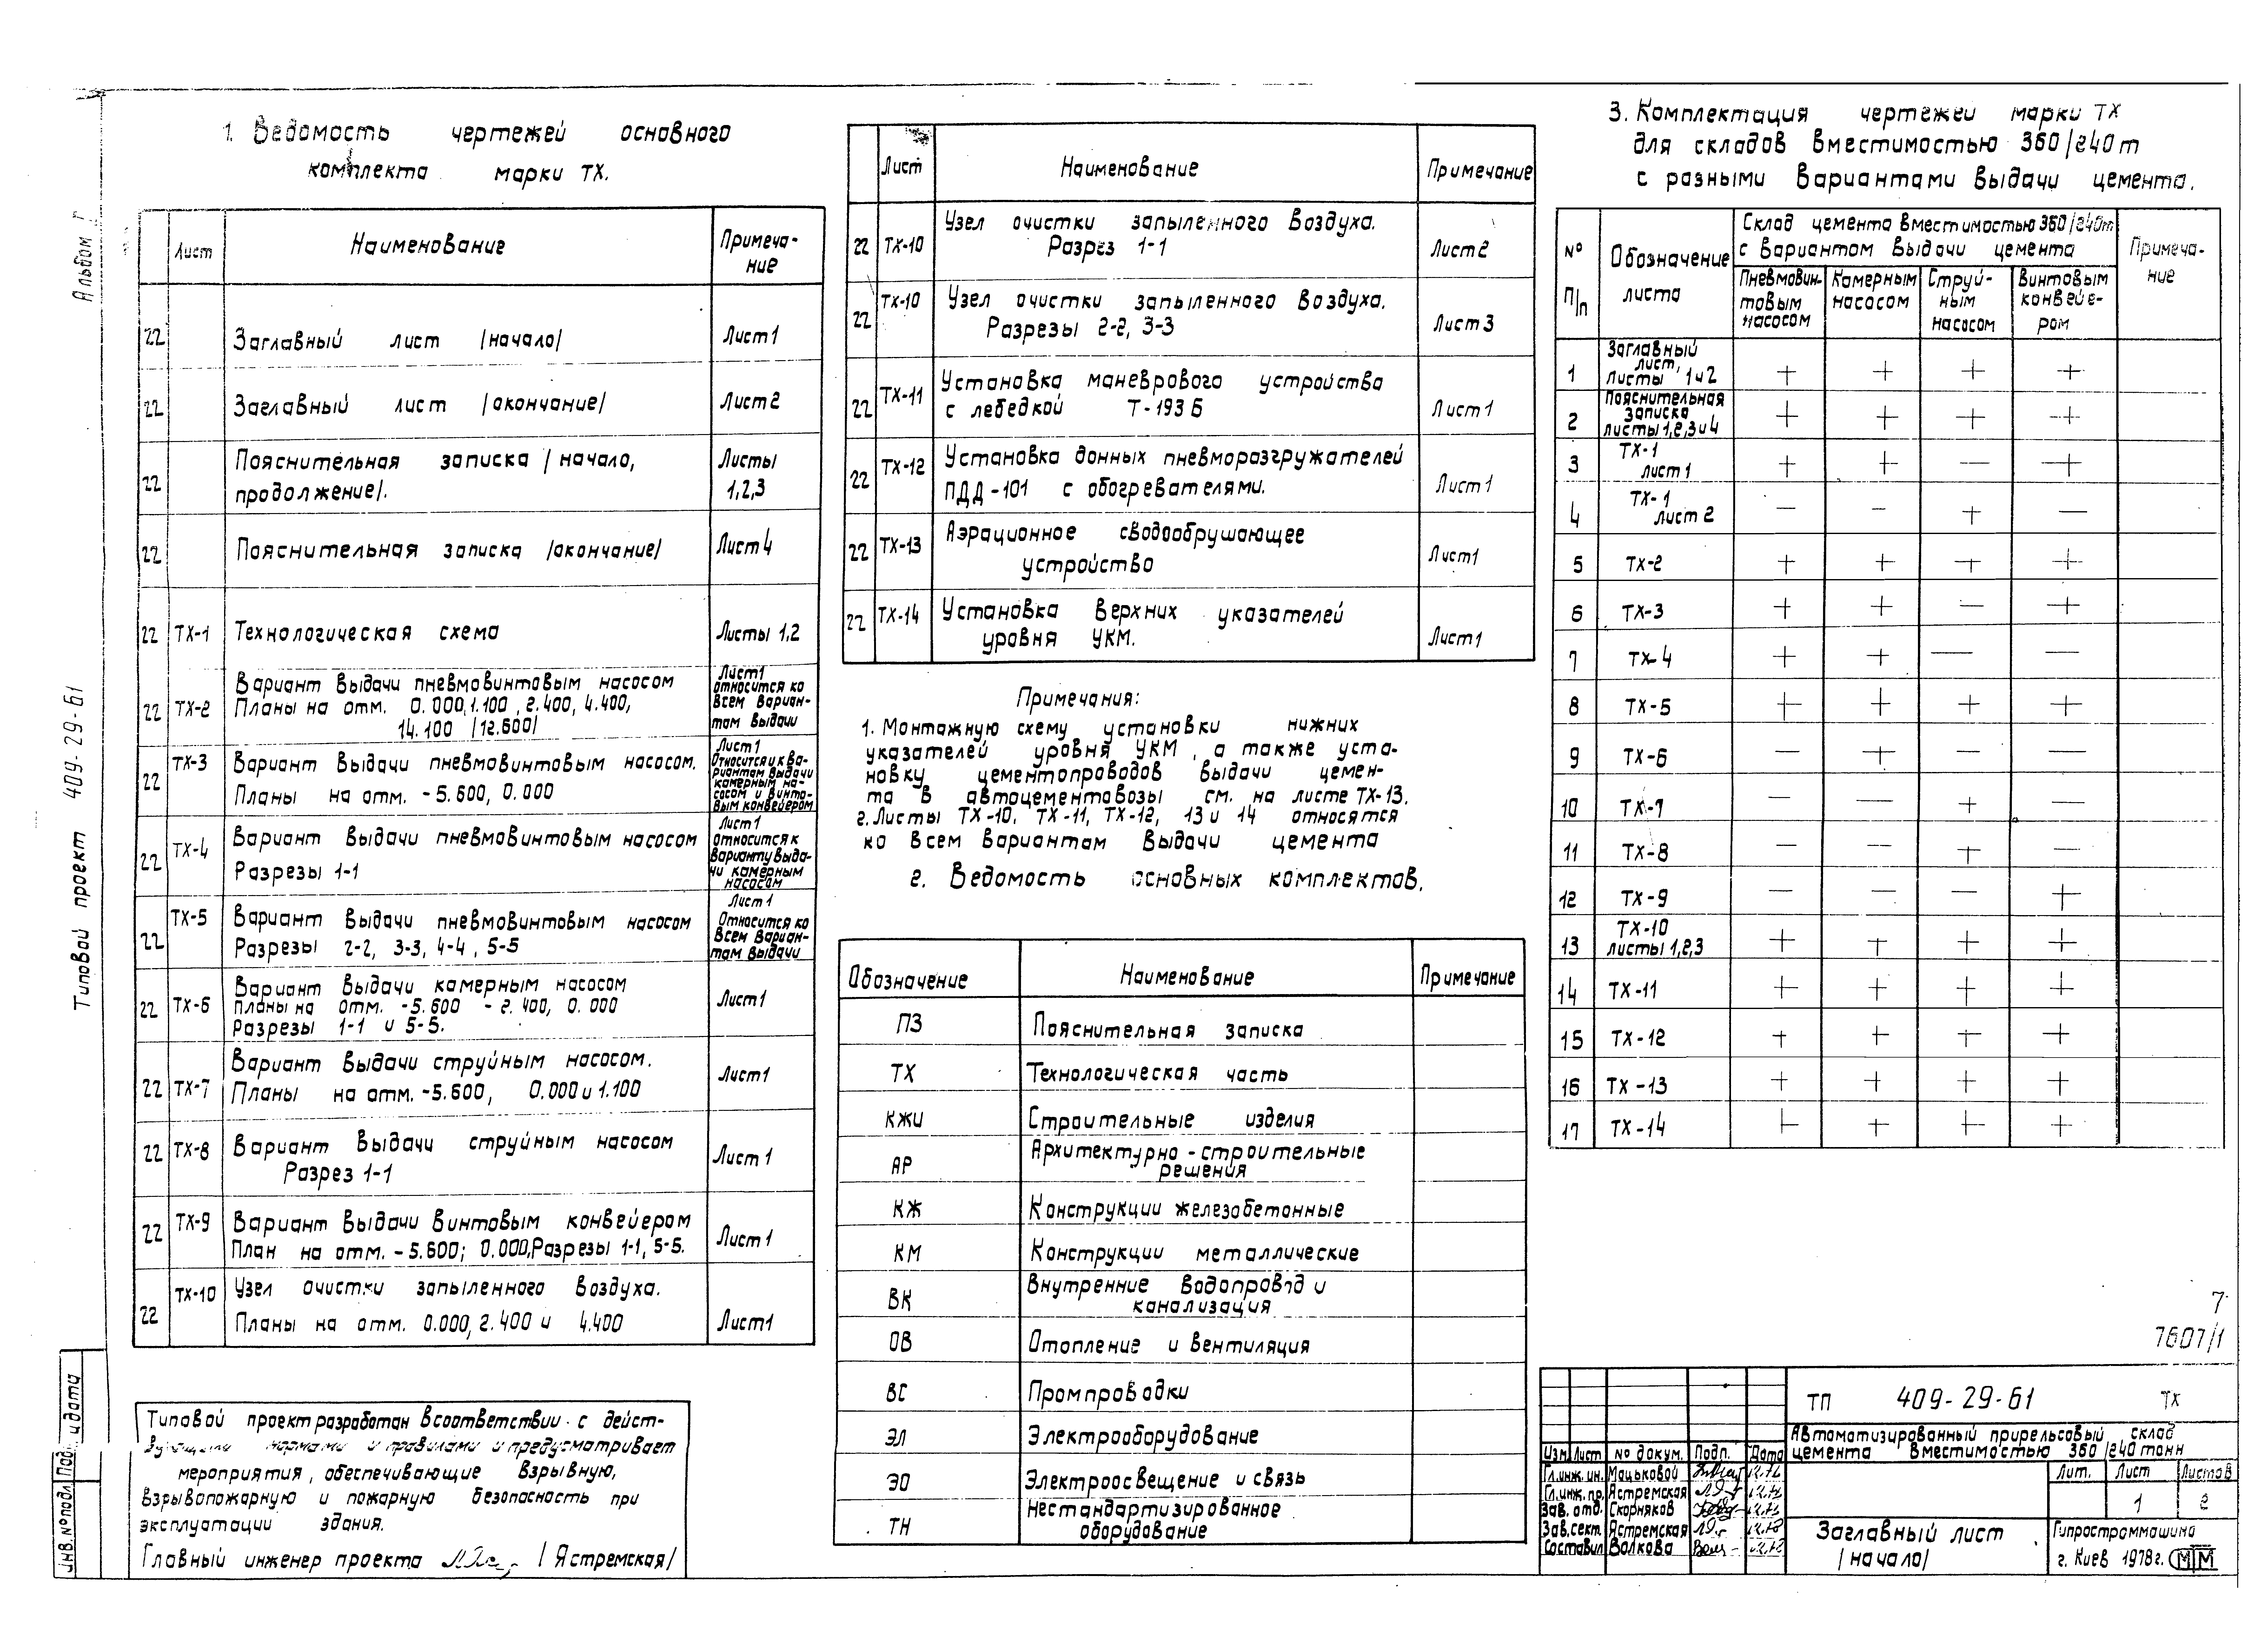 Альбом I
Типовой проект 409-29-61
Инв. № подл. Под. и дата
1. Ведомость чертежей основного
комплекта марки ТХ.
Лист Наименование Примеча-
ние
22 Заглавный лист /начало/ Лист 1
22 Заглавный лист /окончание/ Лист 2
22 Пояснительная записка /начало, Листы
продолжение/. 1,2,3
22 Пояснительная записка /окончание/ Лист 4
22 ТХ-1 Технологическая схема Листы 1,2
22 ТХ-2 Вариант выдачи пневмовинтовым насосом
Планы на отм. 0.000, 1.100, 2.400, 4.400,
14.100 /12.600/
Лист 1
относится ко
всем вариан-
там выдачи
22 ТХ-3 Вариант выдачи пневмовинтовым насосом.
Планы на отм. -5.600, 0.000
Лист 1
Относится к ва-
риантам выдачи
камерным на-
сосом и винто-
вым конвейером
22 ТХ-4 Вариант выдачи пневмовинтовым насосом
Разрезы 1-1
Лист 1
Относится к
варианту выда-
чи камерным
насосом
22 ТХ-5 Вариант выдачи пневмовинтовым насосом
Разрезы 2-2, 3-3, 4-4, 5-5
Лист 1
Относится ко
всем вариан-
там выдачи
22 ТХ-6 Вариант выдачи камерным насосом
Планы на отм. -5.600 - 2.400, 0.000
Разрезы 1-1 и 5-5.
Лист 1
22 ТХ-7 Вариант выдачи струйным насосом.
Планы на отм. -5.600, 0.000 и 1.100
Лист 1
22 ТХ-8 Вариант выдачи струйным насосом
Разрез 1-1
Лист 1
22 ТХ-9 Вариант выдачи винтовым конвейером
План на отм. -5.600; 0.000, Разрезы 1-1, 5-5.
Лист 1
22 ТХ-10 Узел очистки запыленного воздуха.
Планы на отм. 0.000, 2.400 и 4.400
Лист 1
Типовой проект разработан в соответствии с дейст-
вующими нормами и правилами и предусматривает
мероприятия, обеспечивающие взрывную,
взрывопожарную и пожарную безопасность при
эксплуатации здания.
Главный инженер проекта /Ястремская/
Лист Наименование Примечание
22 ТХ-10 Узел очистки запыленного воздуха.
Разрез 1-1
Лист 2
22 ТХ-10 Узел очистки запыленного воздуха.
Разрезы 2-2, 3-3
Лист 3
22 ТХ-11 Установка маневрового устройства
с лебедкой Т-193Б
Лист 1
22 ТХ-12 Установка донных пневморазгружателей
ПДД-101 с обогревателями.
Лист 1
22 ТХ-13 Аэрационное сводообрушающее
устройство
Лист 1
22 ТХ-14 Установка верхних указателей
уровня УКМ.
Лист 1
Примечания:
1. Монтажную схему установки нижних
указателей уровня УКМ, а также уста-
новку цементопроводов выдачи цемен-
та в автоцементовозы см. на листе ТХ-13.
2. Листы ТХ-10, ТХ-11, ТХ-12, 13 и 14 относятся
ко всем вариантам выдачи цемента
2. Ведомость основных комплектов.
Обозначение Наименование Примечание
ПЗ Пояснительная записка
ТХ Технологическая часть
КЖИ Строительные изделия
АР Архитектурно-строительные
решения
КЖ Конструкции железобетонные
КМ Конструкции металлические
ВК Внутренние водопровод и
канализация
ОВ Отопление и вентиляция
ВС Промпроводки
ЭЛ Электрооборудование
ЭО Электроосвещение и связь
ТН Нестандартизированное
оборудование
3. Комплектация чертежей марки ТХ
для складов вместимостью 360/240 т
с разными вариантами выдачи цемента.
№ п/п Обозначение листа
Склад цемента вместимостью 360/240т
с вариантом выдачи цемента
Примеча-
ние
Пневмовин-
товым
насосом
Камерным
насосом
Струй-
ным
насосом
Винтовым
конвейе-
ром
1 Заглавный лист, листы 1 и 2 + + + +
2 Пояснительная записка листы 1,2,3 и 4 + + + +
3 ТХ-1 лист 1 + + — +
4 ТХ-1 лист 2 — — + —
5 ТХ-2 + + + +
6 ТХ-3 + + — +
7 ТХ-4 + + — —
8 ТХ-5 + + + +
9 ТХ-6 — + — —
10 ТХ-7 — — + —
11 ТХ-8 — — + —
12 ТХ-9 — — — +
13 ТХ-10 листы 1,2,3 + + + +
14 ТХ-11 + + + +
15 ТХ-12 + + + +
16 ТХ-13 + + + +
17 ТХ-14 + + + +
7
7607/1
ТП 409-29-61 ТХ
Автоматизированный прирельсовый склад
цемента вместимостью 360/240 тонн
Изм. Лист № докум. Подп. Дата
Гл. инж. ин. Мацьковой
Гл. инж. пр. Ястремская
Зав. отд. Скорняков
Зав. сект. Ястремская
Составил Волкова
Лит. Лист Листов
1 2
Заглавный лист
/начало/
Гипростроммашина
г. Киев 1978г.